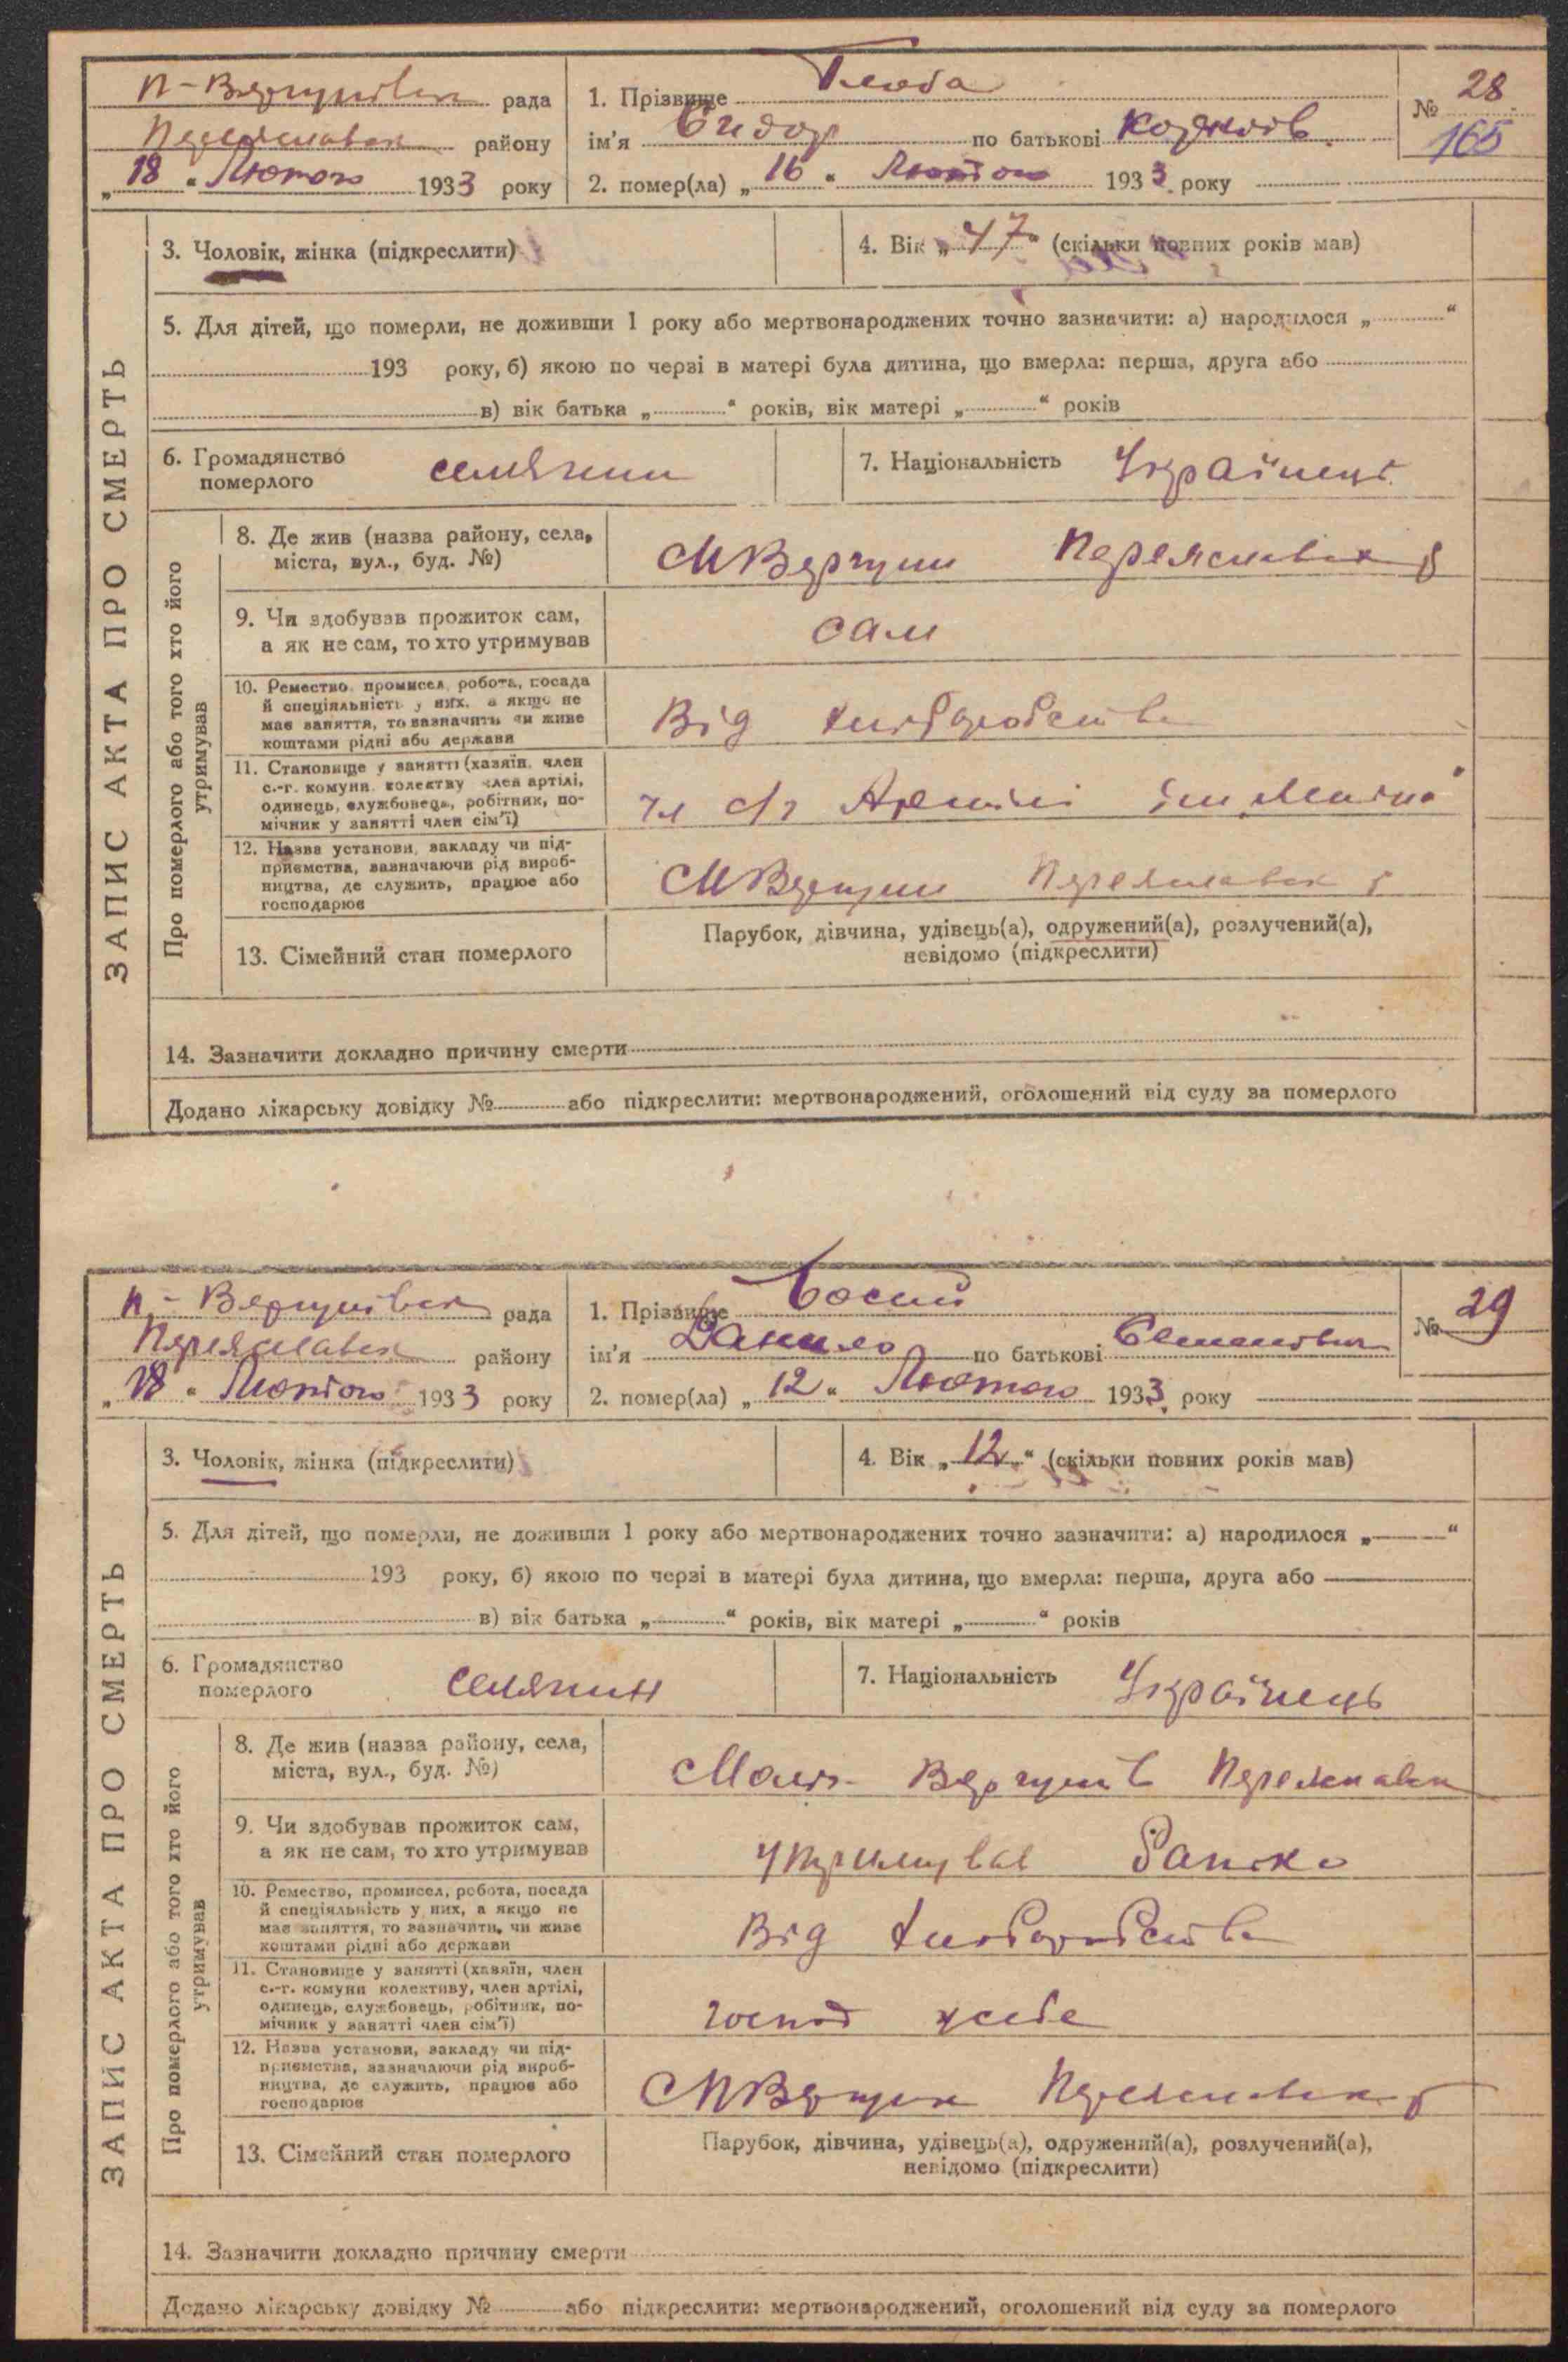 П-Вергунівськ рада
Переяславськ району
„ 18 “ Лютого 1933 року
1. Прізвище
ім'я Сидор по батькові
2. помер(ла) „ 16 “ Лютого 1933 року
№ 28
165
3. Чоловік, жінка (підкреслити)
4. Вік „ 47 “ (скільки повних років мав)
5. Для дітей, що померли, не доживши 1 року або мертвонароджених точно зазначити: а) народилося „ “
193 року, б) якою по черзі в матері була дитина, що вмерла: перша, друга або
в) вік батька „ “ років, вік матері „ “ років
6. Громадянство
померлого
селянин
7. Національність Українець
ЗАПИС АКТА ПРО СМЕРТЬ
Про померлого або того хто його
утримував
8. Де жив (назва району, села,
міста, вул., буд. №)
МВергуни Переяславськ р
9. Чи здобував прожиток сам,
а як не сам, то хто утримував
сам
10. Ремество, промисел, робота, посада
й спеціяльність у них, а якщо не
має заняття, то зазначить чи живе
коштами рідні або держави
Від хліборобства
11. Становище у занятті (хазяїн, член
с.-г. комуни, колективу, член артілі,
одинець, службовець, робітник, по-
мічник у занятті член сім'ї)
чл с/г Артілі ім Леніна
12. Назва установи, закладу чи під-
приємства, зазначаючи рід вироб-
ництва, де служить, працює або
господарює
МВергуни Переяславськ р
13. Сімейний стан померлого
Парубок, дівчина, удівець(а), одружений(а), розлучений(а),
невідомо (підкреслити)
14. Зазначити докладно причину смерти
Додано лікарську довідку № або підкреслити: мертвонароджений, оголошений від суду за померлого
П-Вергунівськ рада
Переяславськ району
„ 18 “ Лютого 1933 року
1. Прізвище Босий
ім'я Данило по батькові Семенович
2. помер(ла) „ 12 “ Лютого 1933 року
№ 29
3. Чоловік, жінка (підкреслити)
4. Вік „ 12 “ (скільки повних років мав)
5. Для дітей, що померли, не доживши 1 року або мертвонароджених точно зазначити: а) народилося „ “
193 року, б) якою по черзі в матері була дитина, що вмерла: перша, друга або
в) вік батька „ “ років, вік матері „ “ років
6. Громадянство
померлого
селянин
7. Національність Українець
ЗАПИС АКТА ПРО СМЕРТЬ
Про померлого або того хто його
утримував
8. Де жив (назва району, села,
міста, вул., буд. №)
Переяславськ
9. Чи здобував прожиток сам,
а як не сам, то хто утримував
утримував Батько
10. Ремество, промисел, робота, посада
й спеціяльність у них, а якщо не
має заняття, то зазначить, чи живе
коштами рідні або держави
Від хліборобства
11. Становище у занятті (хазяїн, член
с.-г. комуни колективу, член артілі,
одинець, службовець, робітник, по-
мічник у занятті член сім'ї)
господ у себе
12. Назва установи, закладу чи під-
приємства, зазначаючи рід вироб-
ництва, де служить, працює або
господарює
МВергун Переяславськ р
13. Сімейний стан померлого
Парубок, дівчина, удівець(а), одружений(а), розлучений(а),
невідомо (підкреслити)
14. Зазначити докладно причину смерти
Додано лікарську довідку № або підкреслити: мертвонароджений, оголошений від суду за померлого